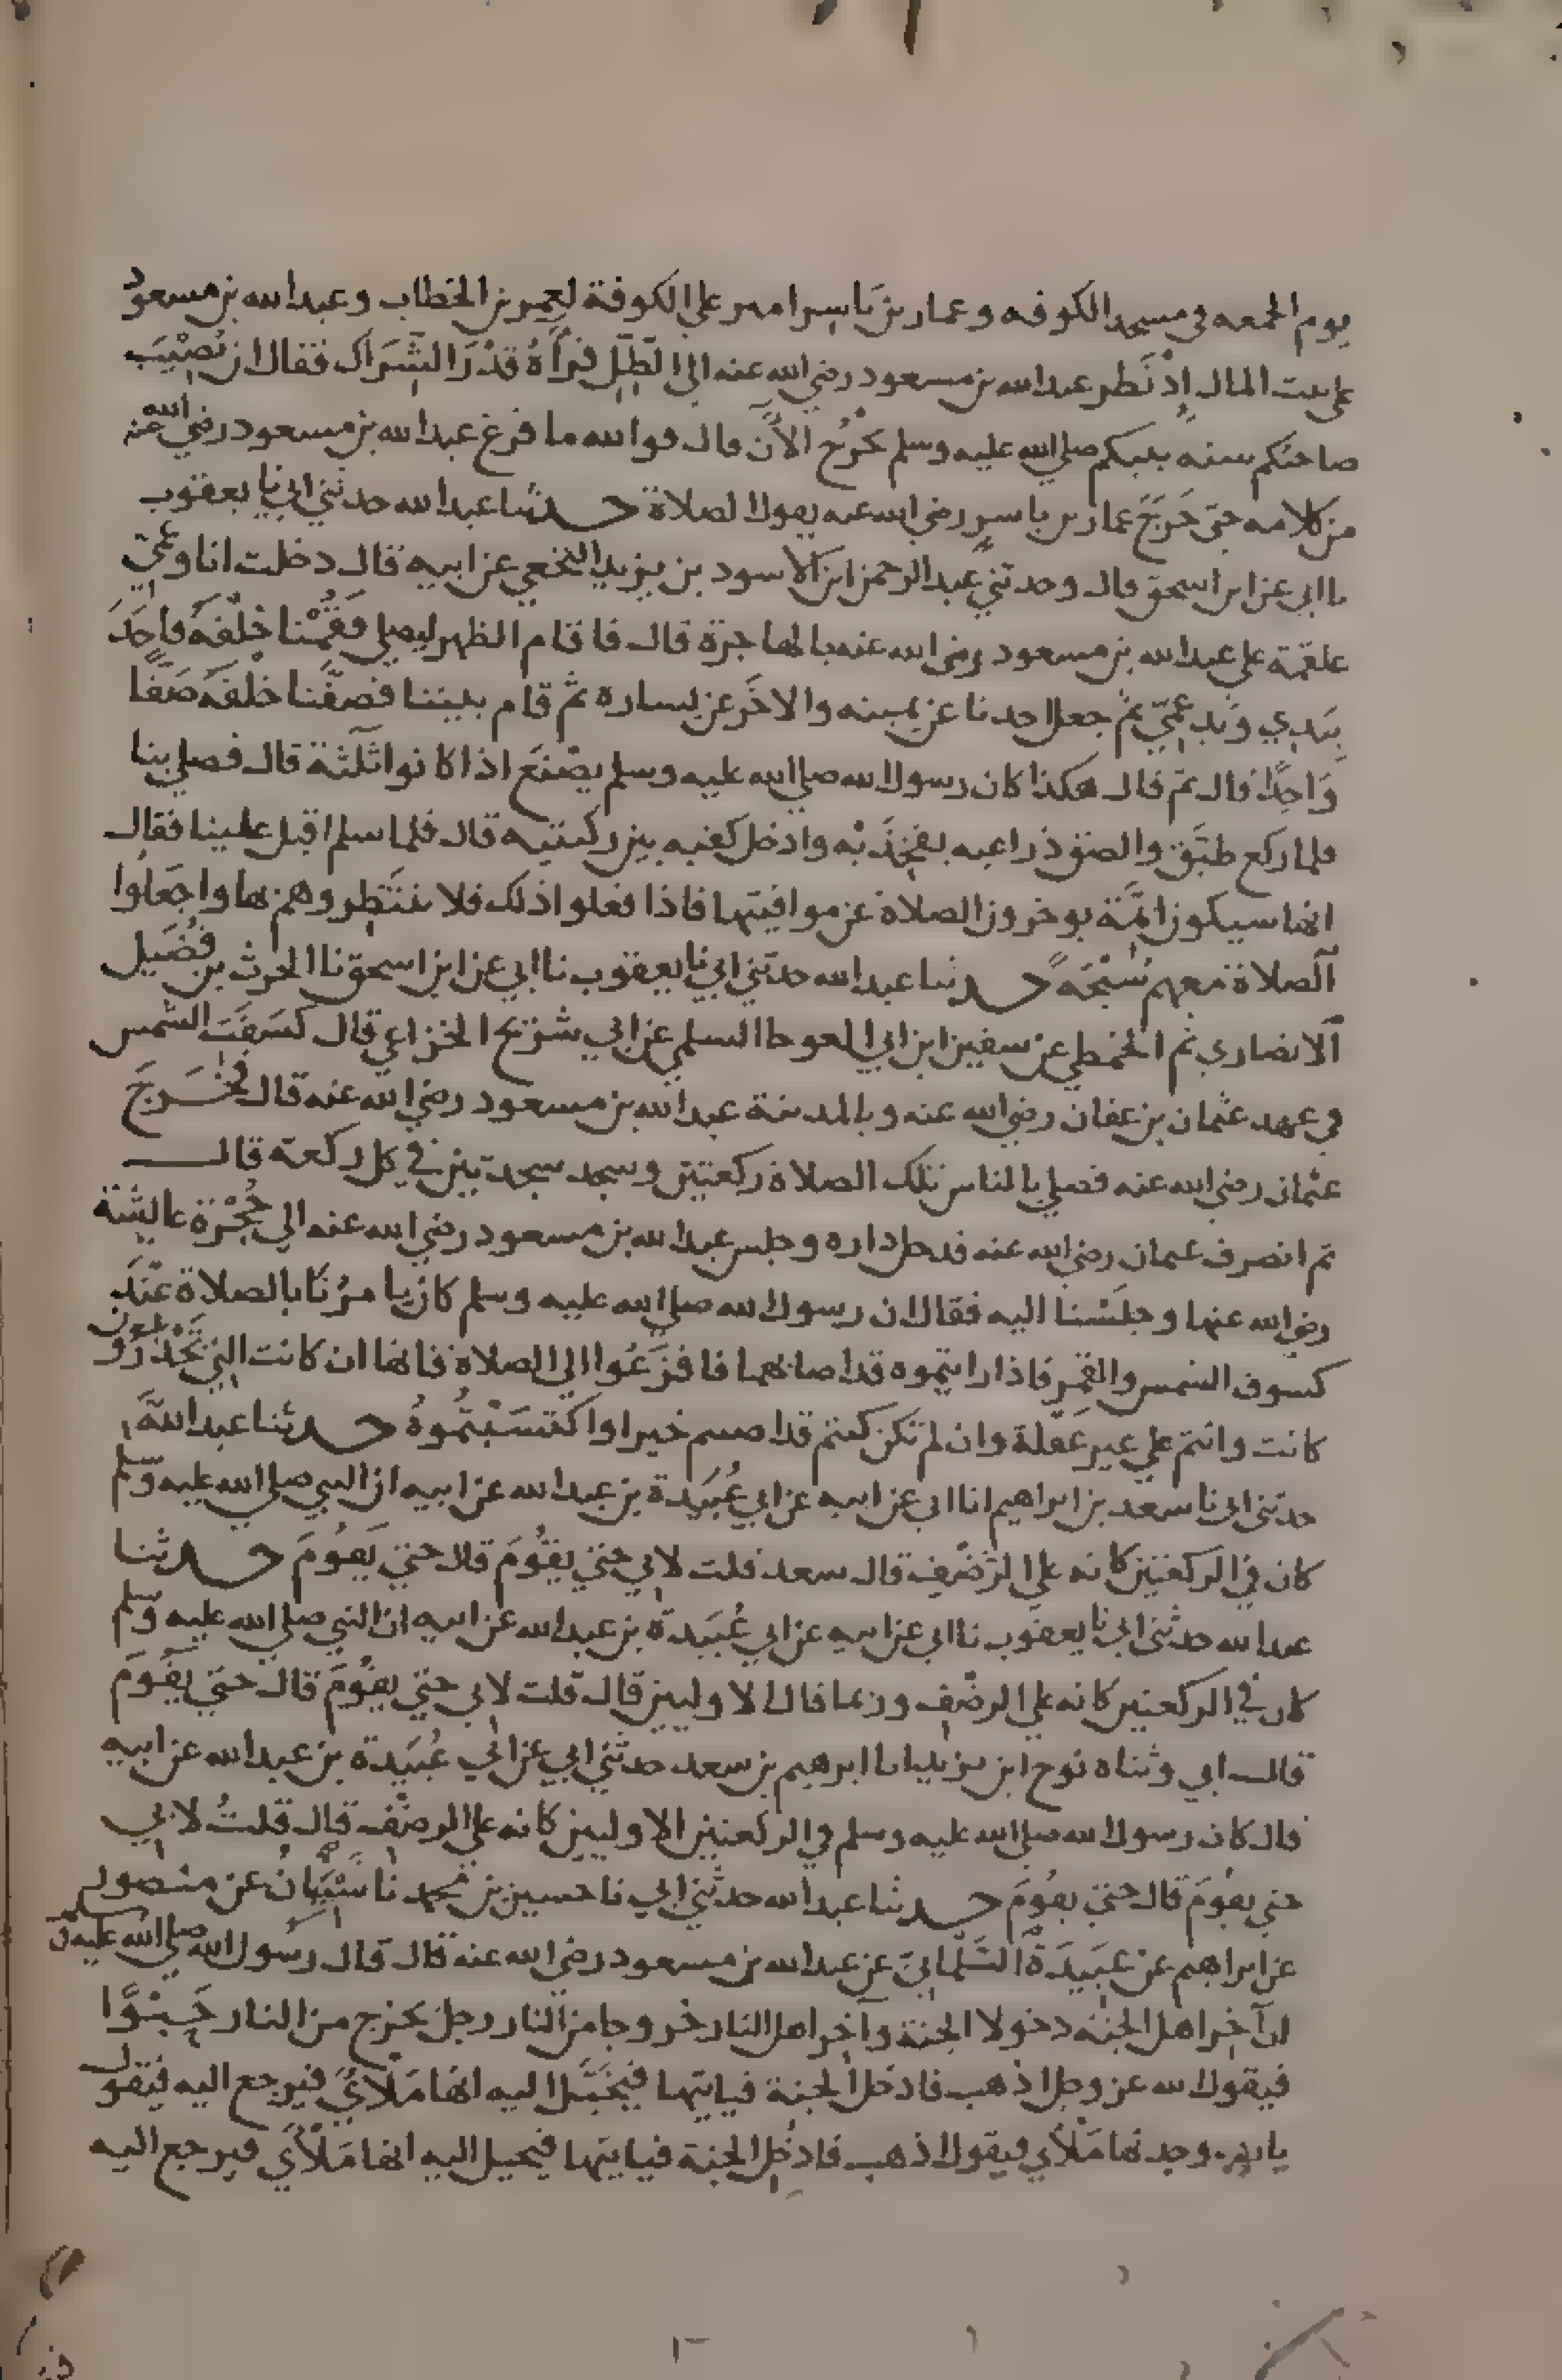 يوم الجمعه في مسجد الكوفه وعمار بن ياسر امير على الكوفة لعمر بن الخطاب وعبد الله بن مسعود
على بيت المال اذ نظر عبد الله بن مسعود رضي الله عنه الى الظل فرآه قدر الشراك فقال ان نصيب
صاحبكم سنه نبيكم صلى الله عليه وسلم يخرج الآن قال فوالله ما فرغ عبد الله بن مسعود رضي الله عنه
من كلامه حتى خرج عمار بن ياسر رضي الله عنه يقول الصلاة حدثنا عبد الله حدثني ابي نا يعقوب
نا ابي عن ابن اسحق قال وحدثني عبد الرحمن ابن الاسود بن يزيد النخعي عن ابيه قال دخلت انا وعمي
علقمة على عبد الله بن مسعود رضي الله عنه بالهاجرة قال فاقام الظهر ليصلي فقمنا خلفه فاخذ
بيدي ويد عمي ثم جعل احدنا عن يمينه والاخر عن يساره ثم قام بيننا فصففنا خلفه صفا
واحدا قال ثم قال هكذا كان رسول الله صلى الله عليه وسلم يصنع اذا كانوا ثلثة قال فصلى بنا
فلما ركع طبق والصق ذراعيه بفخذيه وادخل كفيه بين ركبتيه قال فلما سلم اقبل علينا فقال
انها سيكون ائمة يوخرون الصلاة عن مواقيتها فاذا فعلوا ذلك فلا تنتظروهم بها واجعلوا
الصلاة معهم سبحة حدثنا عبد الله حدثني ابي نا يعقوب نا ابي عن ابن اسحق نا الحرث بن فضيل
الانصاري ثم الخطمي عن سفين ابن ابي العوجا السلمي عن ابي شريح الخزاعي قال كسفت الشمس
في عهد عثمان بن عفان رضي الله عنه وبالمدينة عبد الله بن مسعود رضي الله عنه قال فخرج
عثمان رضي الله عنه فصلى بالناس تلك الصلاة ركعتين وسجد سجدتين في كل ركعة قال
ثم انصرف عثمان رضي الله عنه فدخل داره وجلس عبد الله بن مسعود رضي الله عنه الى حجرة عائشة
رضي الله عنها وجلسنا اليه فقال ان رسول الله صلى الله عليه وسلم كان يامرنا بالصلاة عند
كسوف الشمس والقمر فاذا رايتموه قد اصابهما فافزعوا الى الصلاة فانها ان كانت التي تحذرون
كانت وانتم على غير غفلة وان لم تكن كنتم قد اصبتم خيرا واكتسبتموه حدثنا عبد الله
حدثني ابي نا سعد بن ابراهيم انا ابي عن ابيه عن ابي عبيدة بن عبد الله عن ابيه ان النبي صلى الله عليه وسلم
كان في الركعتين كانه على الرضف قال سعد قلت لابي حتى يقوم قال حتى يقوم حدثنا
عبد الله حدثني ابي نا يعقوب نا ابي عن ابيه عن ابي عبيدة بن عبد الله عن ابيه ان النبي صلى الله عليه وسلم
كان في الركعتين كانه على الرضف وربما قال الاوليين قال قلت لابي حتى يقوم قال حتى يقوم
قال ابي وثناه نوح ابن يزيد انا ابرهيم بن سعد حدثني ابي عن ابي عبيدة بن عبد الله عن ابيه
قال كان رسول الله صلى الله عليه وسلم في الركعتين الاوليين كانه على الرضف قال قلت لابي
حتى يقوم قال حتى يقوم حدثنا عبد الله حدثني ابي نا حسين بن محمد نا شيبان عن منصور
عن ابراهيم عن عبيدة السلماني عن عبد الله بن مسعود رضي الله عنه قال قال رسول الله صلى الله عليه وسلم
ان آخر اهل الجنة دخولا الجنة وآخر اهل النار خروجا من النار رجل يخرج من النار حبوا
فيقول الله عز وجل اذهب فادخل الجنة فياتيها فيخيل اليه انها ملأى فيرجع اليه فيقول
يا رب وجدتها ملأى فيقول اذهب فادخل الجنة فياتيها فيخيل اليه انها ملأى فيرجع اليه